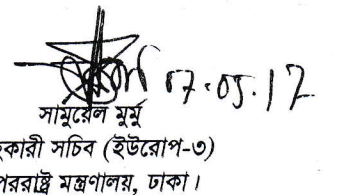 07.05.17
সামুয়েল মুর্মু
কারী সচিব (ইউরোপ-৩)
পররাষ্ট্র মন্ত্রণালয়, ঢাকা।